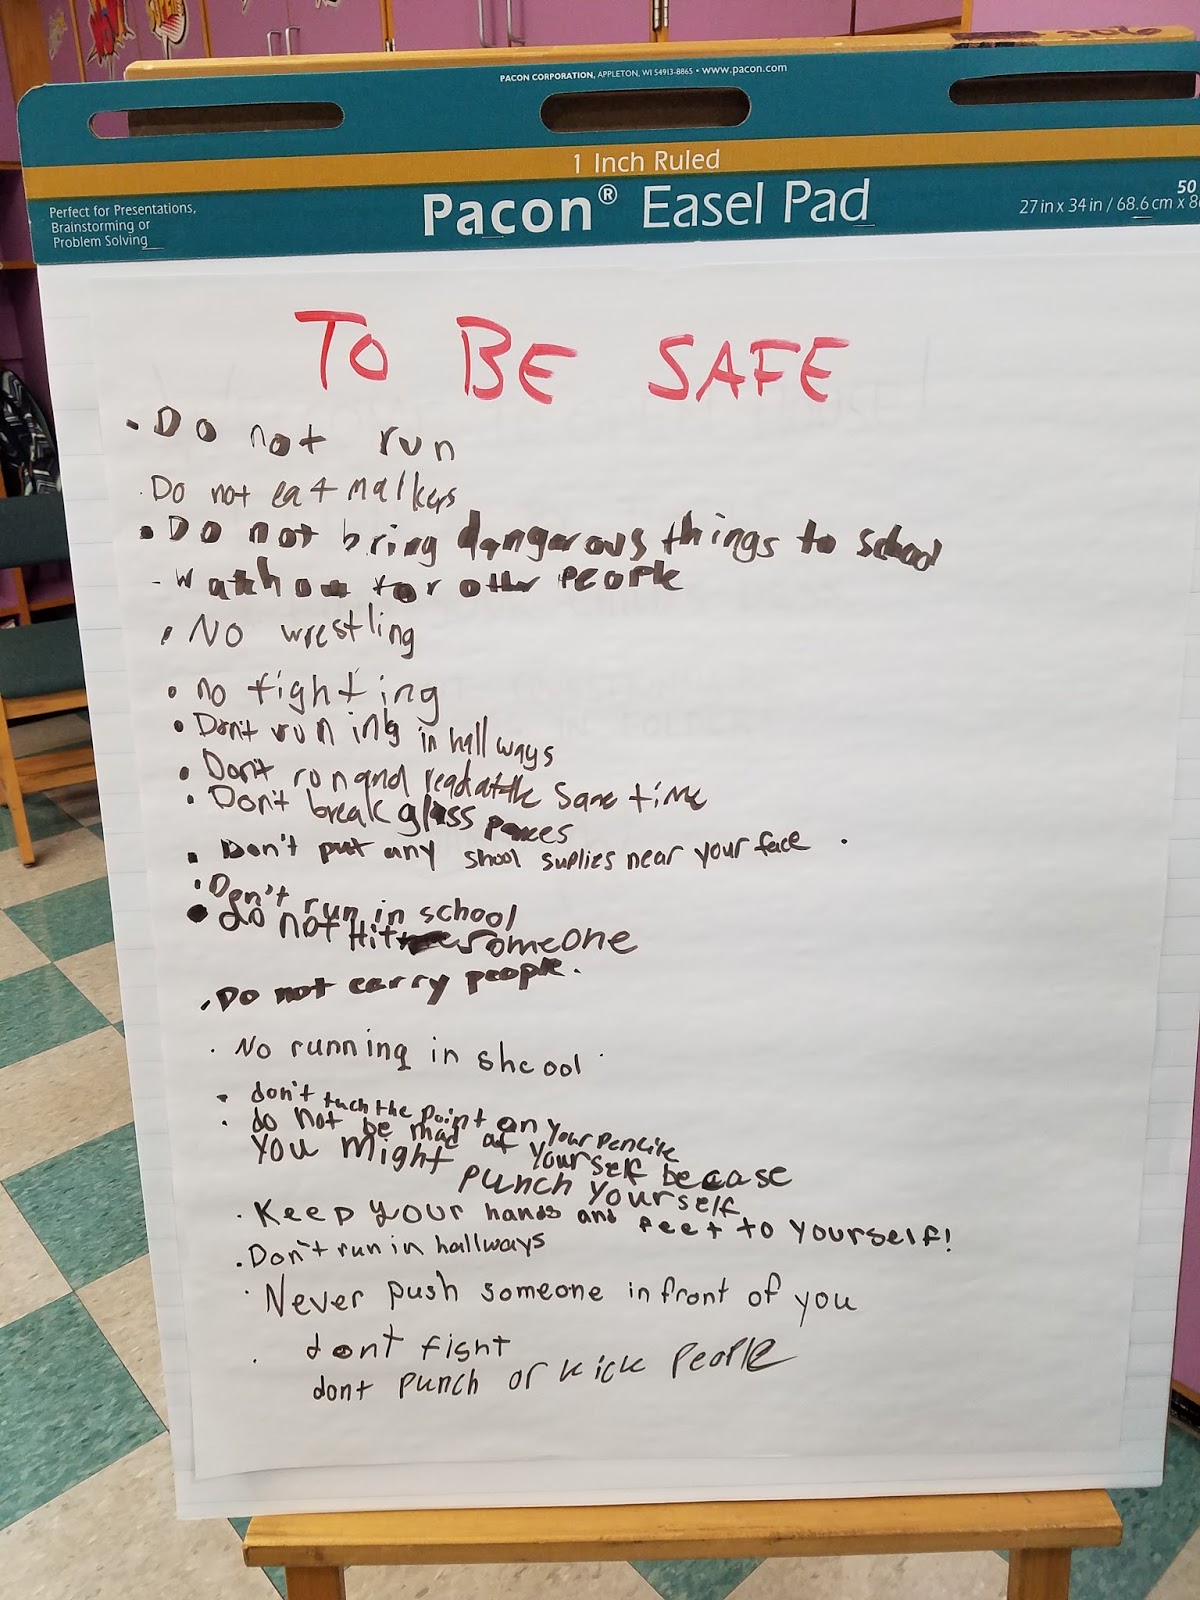 PACON CORPORATION, APPLETON, WI 54913-8865 • www.pacon.com
1 Inch Ruled
Pacon® Easel Pad
Perfect for Presentations,
Brainstorming or
Problem Solving
50
27 in x 34 in / 68.6 cm x 8
TO BE SAFE
• Do not run
. Do not eat malkers
• Do not bring dangerous things to school
- watch out for other people
• No wrestling
• no fighting
• Don't runing in hallways
• Don't run and read at the same time
• Don't break glass
• Don't put any shool suplies near your face .
• Don't run in school
• do not Hit someone
. Do not carry people.
. No running in shcool .
• don't tuch the point on your
. do not be mad at yourself becase
you might punch yourself
. Keep your hands and feet to yourself!
. Don't run in hallways
. Never push someone in front of you
. dont fight
dont punch or kick people